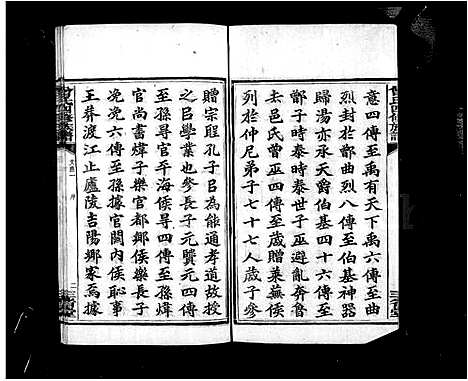 意四傳至禹有天下禹六傳至曲
烈封於鄫曲烈八傳至伯基神器
歸湯亦承天爵伯基四十六傳至
鄫子時泰時泰世子巫避亂奔魯
去邑氏曾巫四傳至歲贈萊蕪侯
列於仲尼弟子七十七人歲子參
贈宗聖孔子㠯為能通孝道故授
之㠯學業也參長子元元贊四傳
至孫尋官平海侯尋四傳至孫煒
官尚書煒子樂官都鄉侯樂長子
浼浼六傳至孫據官關內侯恥事
王莽渡江止廬陵吉陽鄉家焉據